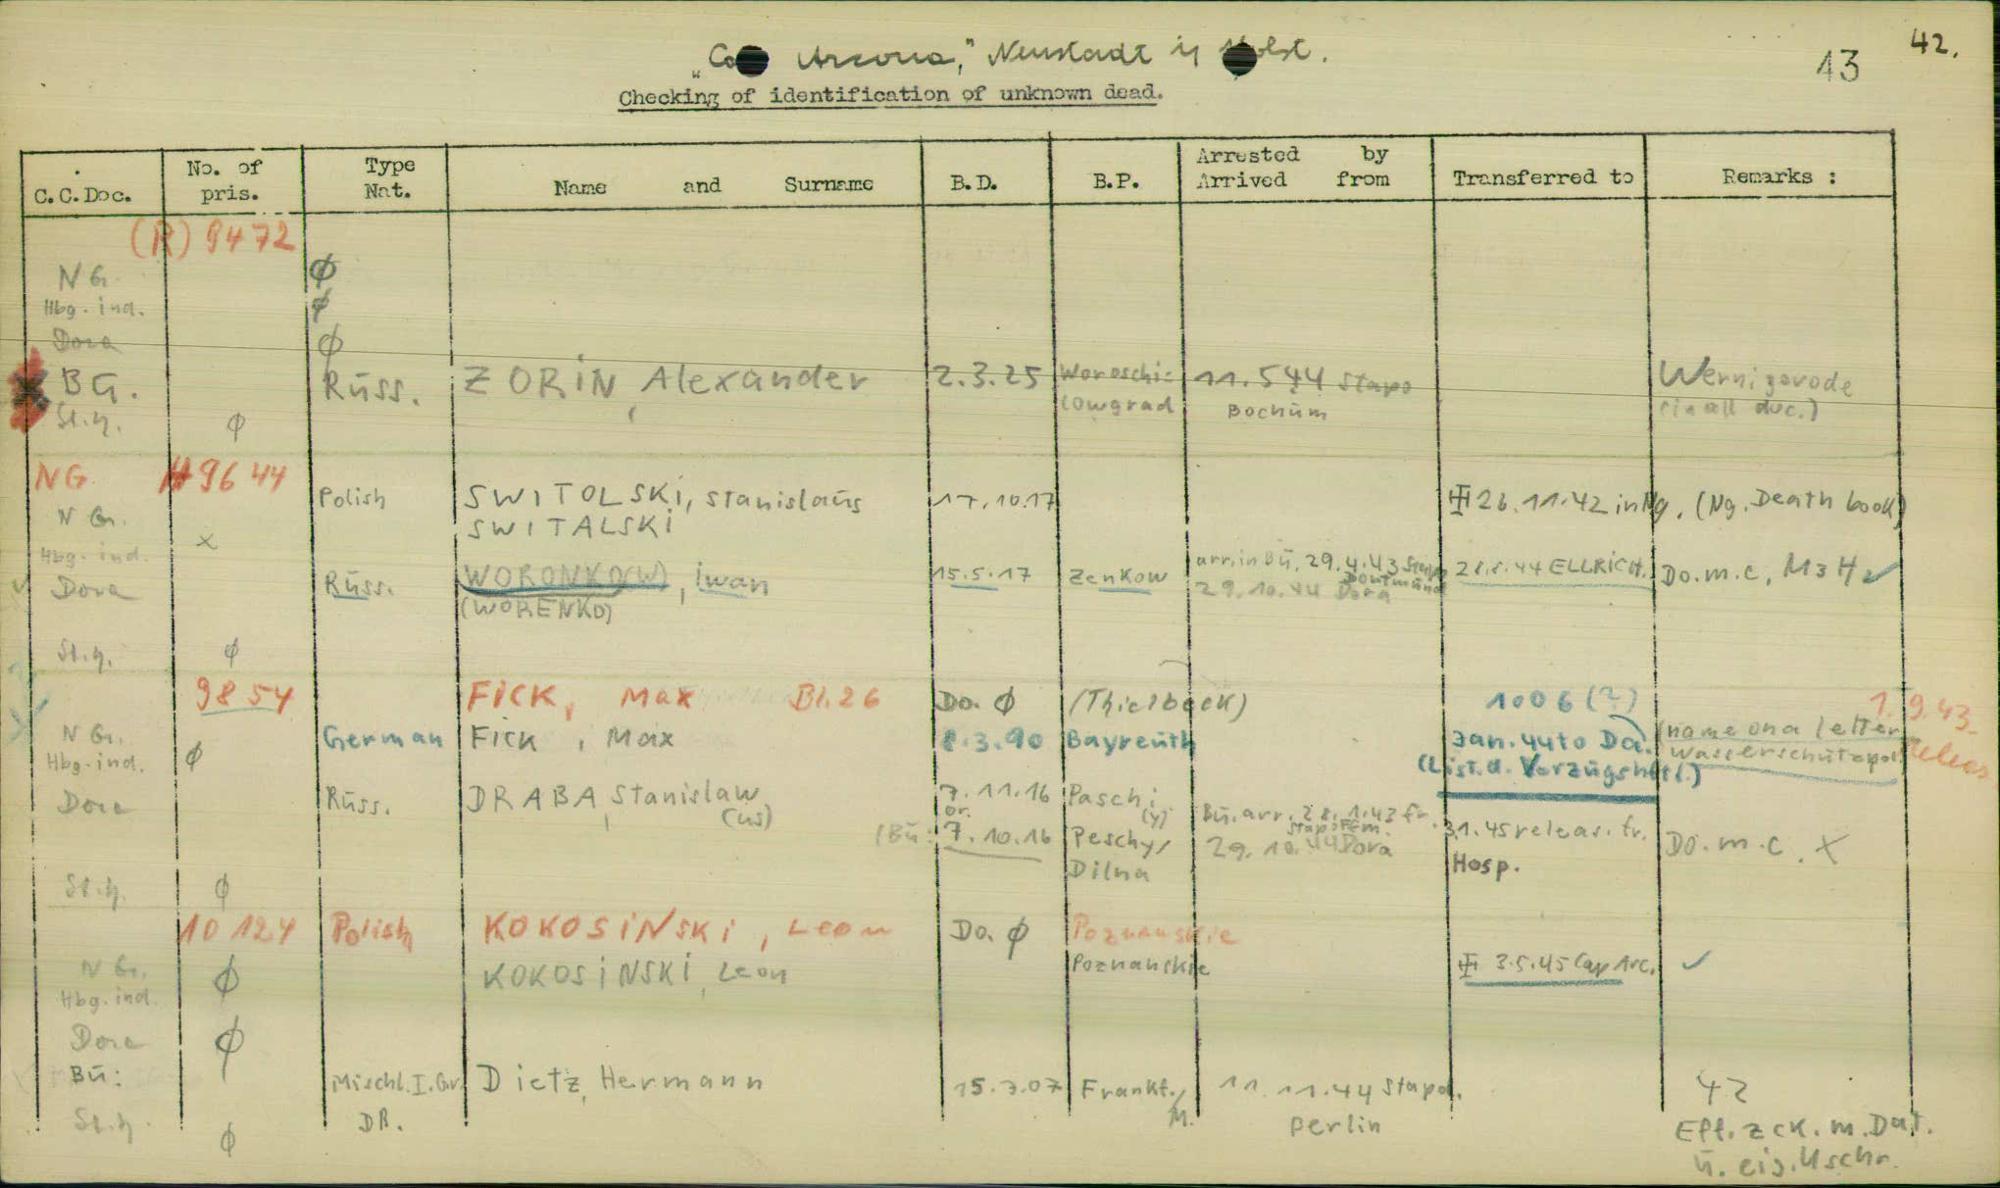 "Cap Arcona," Neustadt in Holst.
13
42.
Checking of identification of unknown dead.
C.C.Doc. No. of pris. Type Nat. Name and Surname B.D. B.P. Arrested by Arrived from Transferred to Remarks :
(R) 9472
N G. ϕ
Hbg. ind. ϕ
Dora ϕ
BG. Russ. ZORIN, Alexander 2.3.25 Woroschi= 11.544 Stapo Wernigerode
lowgrad Bochum (in all doc.)
St.y. ϕ
NG. 9644
Polish SWITOLSKI, Stanislaus 17.10.17 26.11.42 in Ng. (Ng. Death book)
N G. SWITALSKI
Hbg. ind. x
Dora Russ. WORONKO(W), Iwan 15.5.17 Zenkow arr. in Bu. 29.4.43 Stapo Dortmund ELLRICH. Do.m.c, M3H
(WORENKO) 29.10.44 Dora
St.y. ϕ
9854 FICK, Max Bl.26 Do. ϕ (Thielbeck) 1006 (?) 1.9.43
N G. German Fick, Max 8.3.90 Bayreuth Jan. 44 to Da. (name on a letter
Hbg. ind. ϕ (List. d. Vorzugshftl.) Wasserschutzpol.
Dora Russ. DRABA, Stanislaw 7.11.16 Paschi Bu. arr. 28.1.43 fr. Stapo Ffm.
(us) or. (y)
(Bu: 7.10.16 Peschy, 29.10.44 Dora 3.1.45 releas. fr. Do.m.c. X
Dilna Hosp.
St.y. ϕ
10124 Polish KOKOSINSKI, Leon Do. ϕ Poznanskie
N G. ϕ KOKOSINSKI, Leon Poznanskie 3.5.45 Cap Arc.
Hbg. ind.
Dora ϕ
Bu: Mischl. I. Gr. Dietz, Hermann 15.7.07 Frankf./ 11.11.44 Stapo. 42
DR. M. Berlin
St.y. ϕ Eff. zck. m. Dat.
u. eig. Uschr.